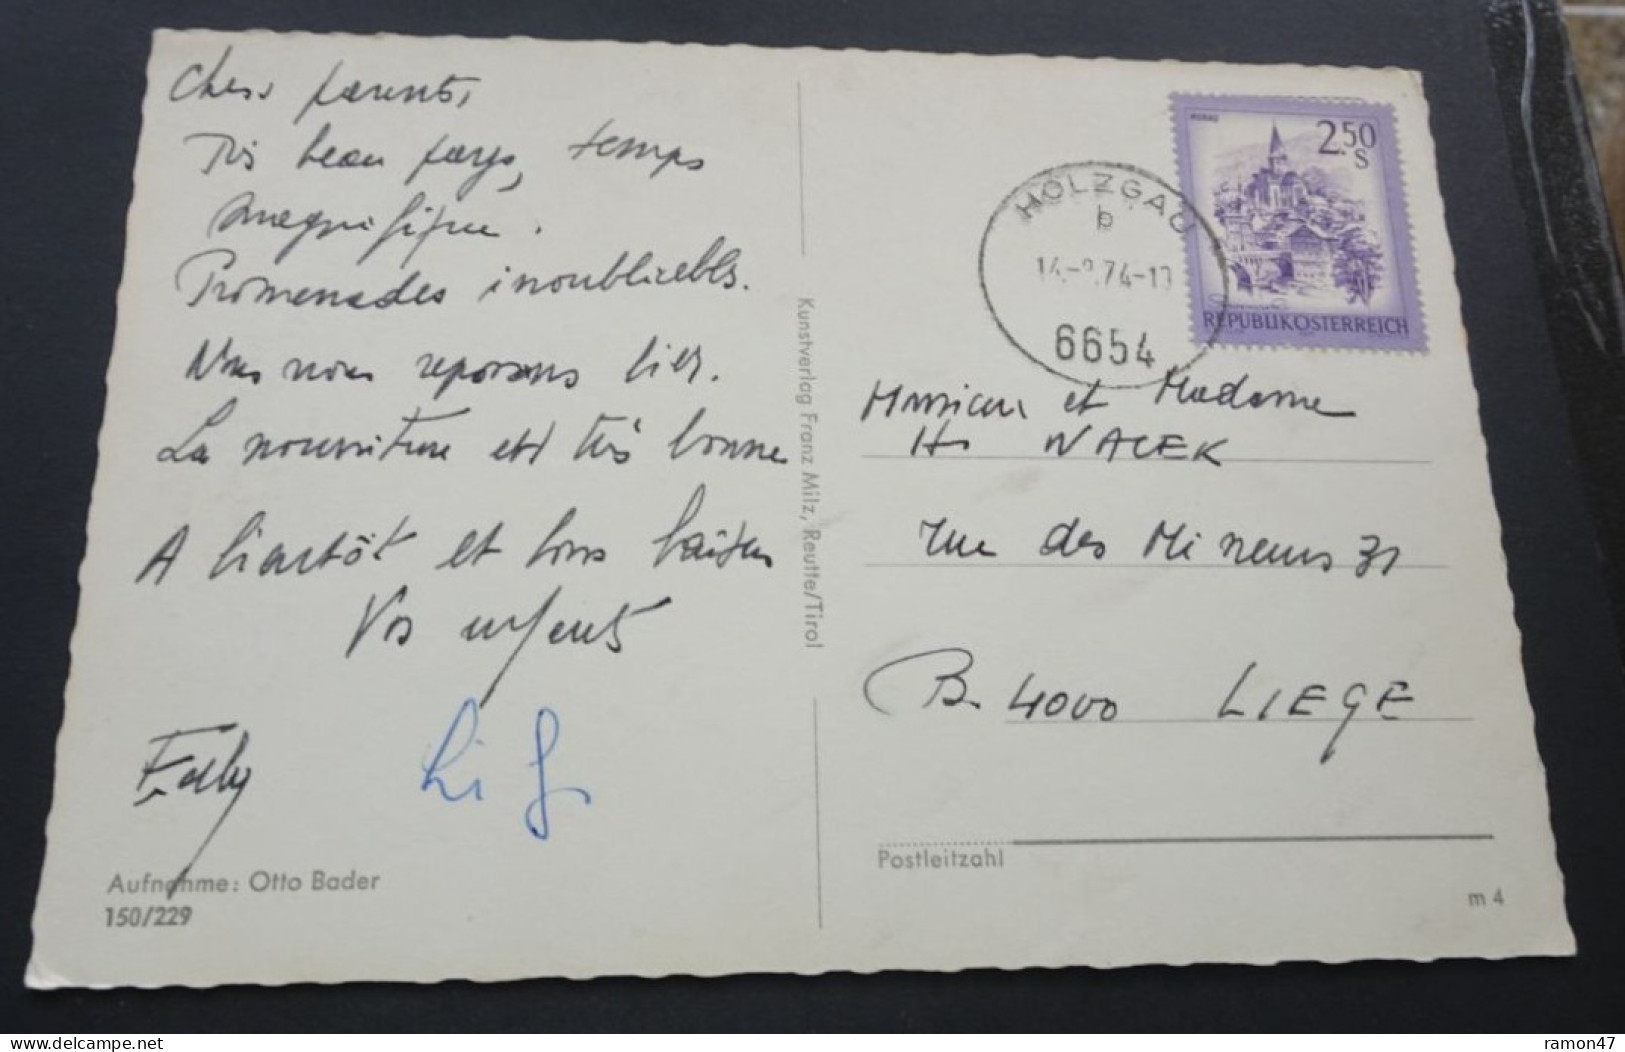 Chers parents,
Très beau pays, temps
magnifique.
Promenades inoubliables.
Nous nous reposons bien.
La nourriture est très bonne
A bientôt et bons baisers
Vos enfants
Aufnahme: Otto Bader
150/229
Kunstverlag Franz Milz, Reutte/Tirol
MURAU
2.50
S
REPUBLIK ÖSTERREICH
HOLZGAU
b
74
6654
Monsieur et Madame
H. WACEK
rue des Mineurs 31
B. 4000 LIEGE
Postleitzahl
m 4
delcampe.net
ramon47